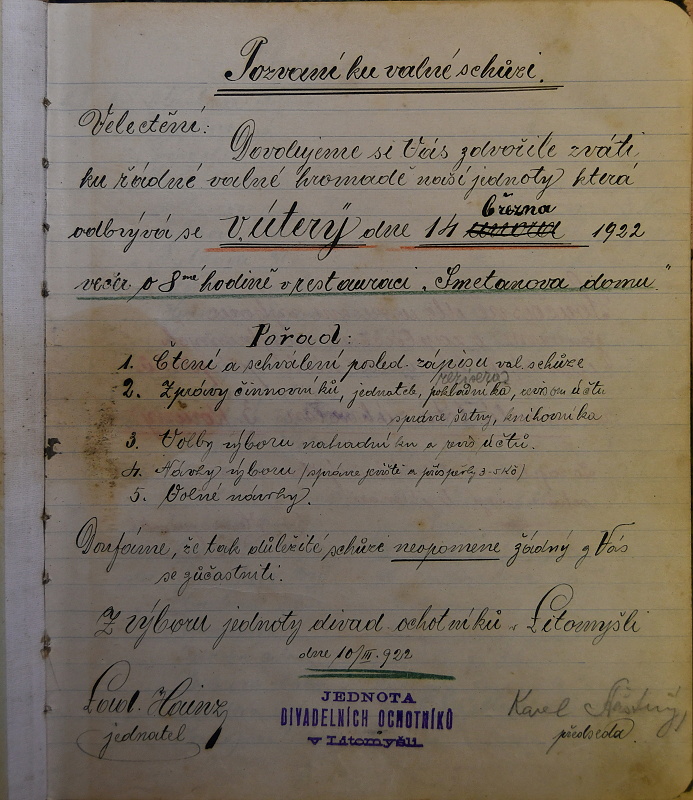 Pozvaní ku valné schůzi.
Velectění:
Dovolujeme si Vás zdvořile zváti
ku řádné valné hromadě naší jednoty která
března
odbývá se v úterý dne 14 1922
večer o 8mé hodině v restauraci „Smetanova domu"
Pořad:
1. Čtení a schválení posled. zápisu val. schůze
režisera
2. Zprávy činnovníků, jednatele, pokladníka, revisorů účtů
správce šatny, knihovníka
3. Volby výboru nahradníku a revis účtů.
4. Návrhy výboru (správce jeviště a příspěvky 3-5 Kč)
5. Volné návrhy.
Doufáme, že tak důležité schůzi neopomene žádný z Vás
se zúčastniti.
Z výboru jednoty divad. ochotníků v Litomyšli
dne 10/III. 922
JEDNOTA
DIVADELNÍCH OCHOTNÍKŮ
v Litomyšli.
Hainz Karel
jednatel předseda.